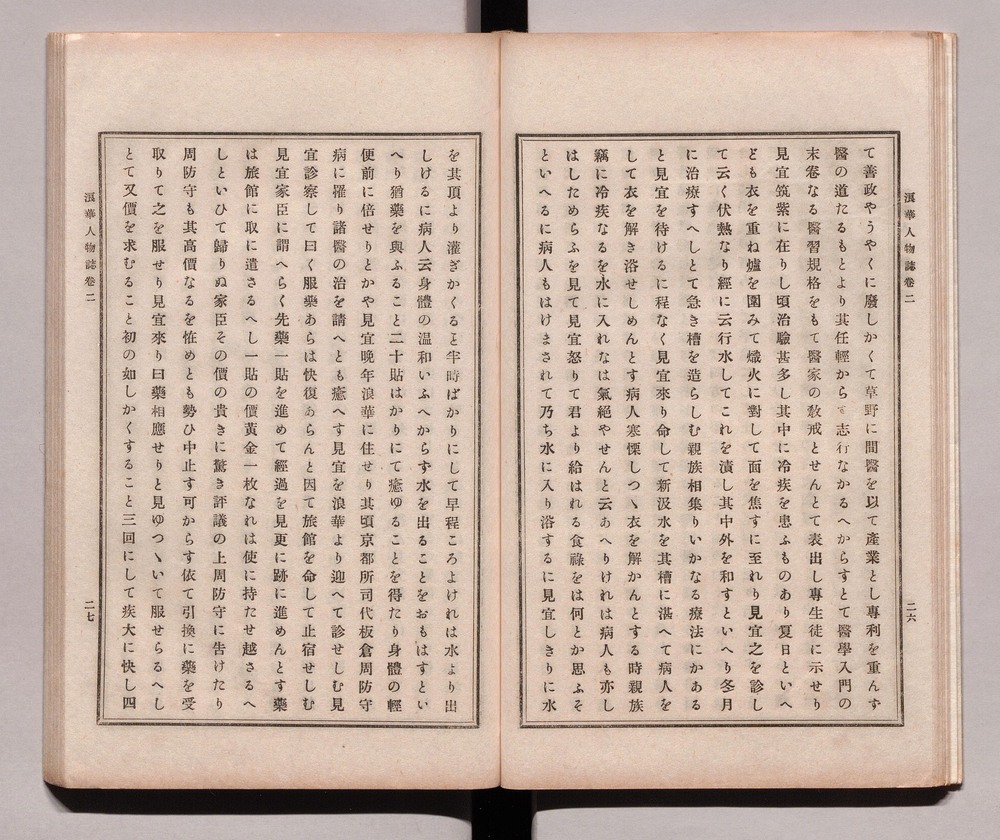 浪華人物誌卷二
二六
て善政やうやくに廢しかくて草野に間醫を以て產業とし專利を重んす
醫の道たるもとより其任輕からす志行なかるへからすとて醫學入門の
末卷なる醫習規格をもて醫家の敎戒とせんとて表出し專生徒に示せり
見宜筑紫に在りし頃治驗甚多し其中に冷疾を患ふものあり夏日といへ
ども衣を重ね爐を圍みて熾火に對して面を焦すに至れり見宜之を診し
て云く伏熱なり經に云行水してこれを漬し其中外を和すといへり冬月
に治療すへしとて急き槽を造らしむ親族相集りいかなる療法にかある
と見宜を待けるに程なく見宜來り命して新汲水を其槽に湛へて病人を
して衣を解き浴せしめんとす病人寒慄しつヽ衣を解かんとする時親族
竊に冷疾なるを水に入れなは氣絕やせんと云あへりけれは病人も亦し
はしためらふを見て見宜怒りて君より給はれる食祿をは何とか思ふそ
といへるに病人もはけまされて乃ち水に入り浴するに見宜しきりに水
を其頂より灌ぎかくると半時ばかりにして早程ころよけれは水より出
しけるに病人云身體の溫和いふへからす水を出ることをおもはすとい
へり猶藥を與ふること二十貼はかりにて癒ゆることを得たり身體の輕
便前に倍せりとかや見宜晚年浪華に住せり其頃京都所司代板倉周防守
病に罹り諸醫の治を請へとも癒へす見宜を浪華より迎へて診せしむ見
宜診察して曰く服藥あらは快復あらんと因て旅館を命して止宿せしむ
見宜家臣に謂へらく先藥一貼を進めて經過を見更に跡に進めんとす藥
は旅館に取に遣さるへし一貼の價黃金一枚なれは使に持たせ越さるへ
しといひて歸りぬ家臣その價の貴きに驚き評議の上周防守に吿けたり
周防守も其高價なるを恠めとも勢ひ中止す可からす依て引換に藥を受
取りて之を服せり見宜來り曰藥相應せりと見ゆつヽいて服せらるへし
とて又價を求むること初の如しかくすること三回にして疾大に快し四
浪華人物誌卷二
二七